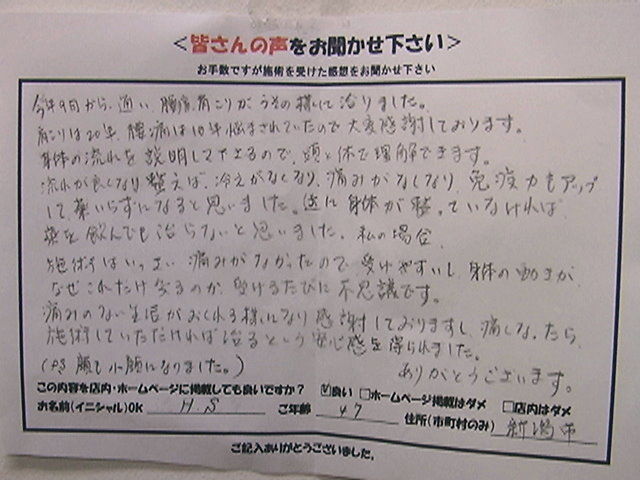 <皆さんの声をお聞かせ下さい>
お手数ですが施術を受けた感想をお聞かせ下さい
今年9月から、通い、腰痛、肩こりがうその様に治りました。
肩こりは20年、腰痛は10年悩まされていたので大変感謝しております。
身体の流れを説明して下さるので、頭と体で理解できます。
流れが良くなり整えば、冷えがなくなり、痛みがなくなり、免疫力もアップ
して薬いらずになると思いました。逆に身体が整っていなければ
薬を飲んでも治らないと思いました。私の場合、
施術はいっさい痛みがなかったので受けやすいし、身体の動きが
なぜこれだけ変るのか、受けるたびに不思議です。
痛みのない生活がおくれる様になり感謝しておりますし、痛くなったら
施術していただければ治るという安心感を得られました。
(PS 顔も小顔になりました。) ありがとうございます。
この内容を店内・ホームページに掲載しても良いですか? ☑良い □ホームページ掲載はダメ □店内はダメ
お名前(イニシャル)OK H.S ご年齢 47 住所(市町村のみ) 新潟市
ご記入ありがとうございました。